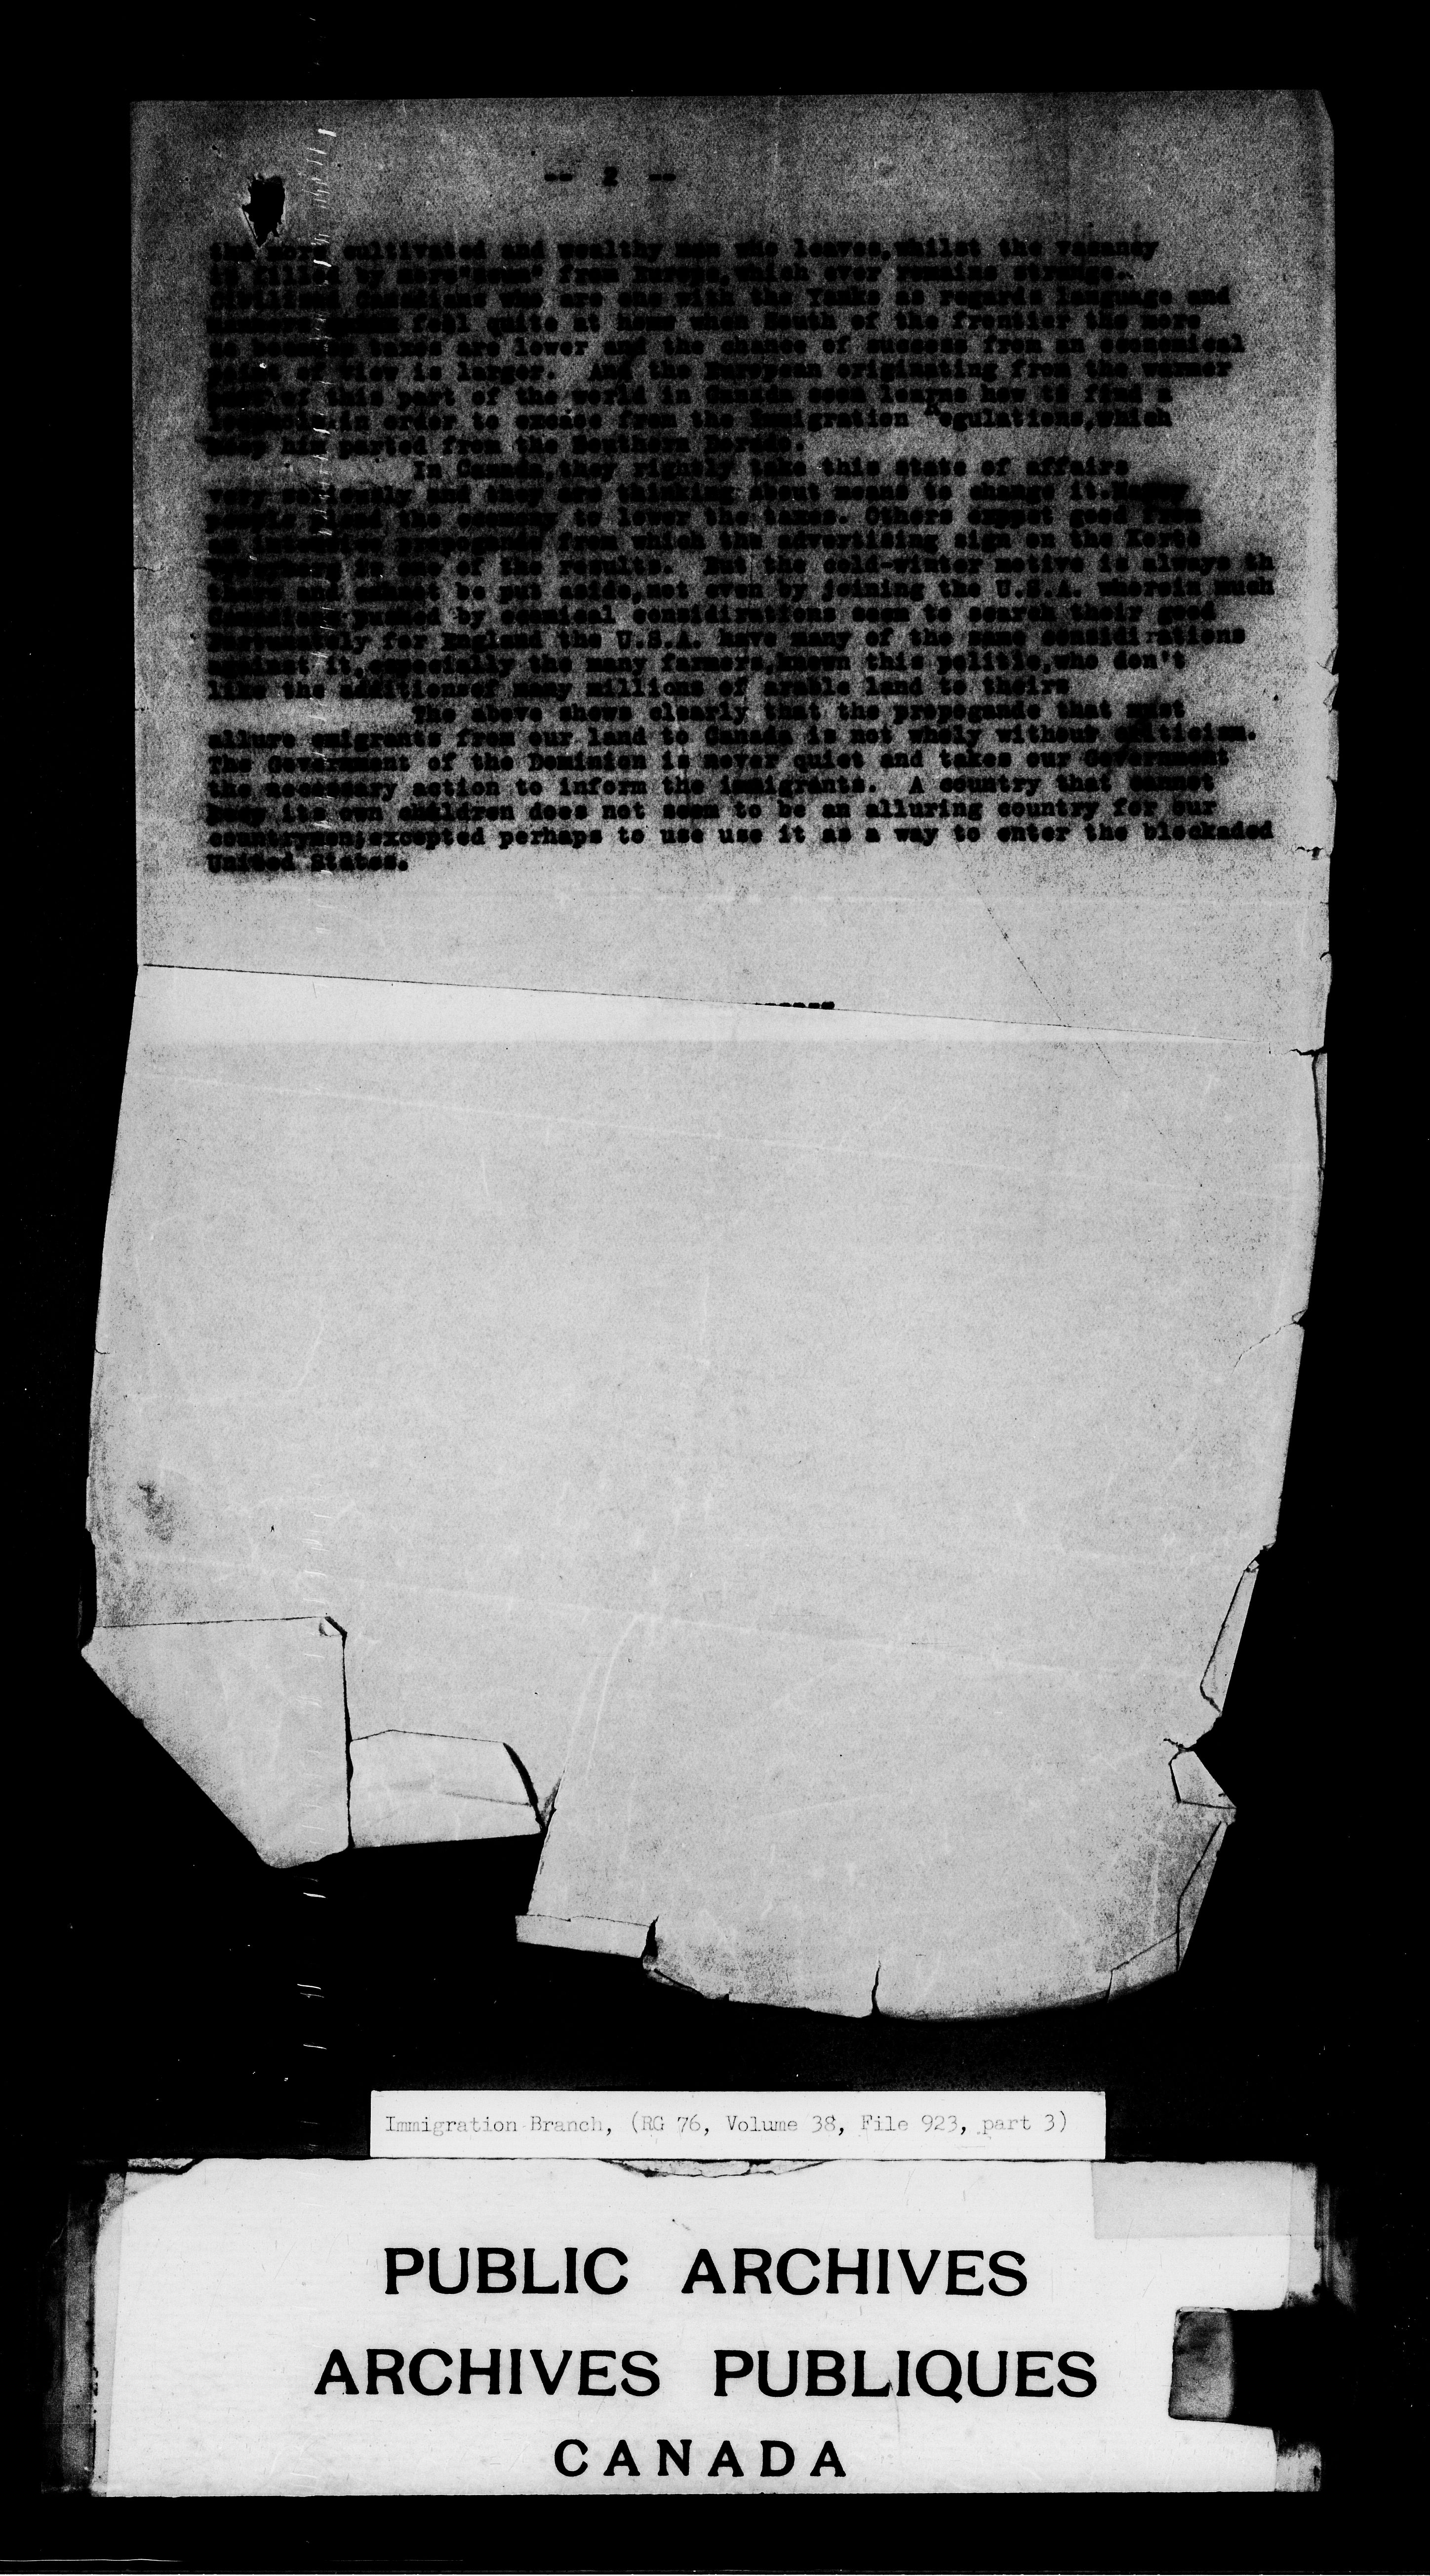 -- 2 --
the more cultivated and wealthy man who leaves, whilst the vacancy
is filled by more from Europe, which ever remains strange.
Civilized Canadians who are one with the Yanks as regards language and
feel quite at home when South of the frontier the more
so because taxes are lower and the chance of success from an economical
point of view is larger. And the European originating from the warmer
part of this part of the world in Canada soon learns how to find a
in order to escape from the Immigration Regulations, which
keep him parted from the Southern Borde.
In Canada, they rightly take this state of affairs
very seriously and they are thinking about means to change it.
the country to lower the taxes. Others expect good from
an propaganda from which the advertising sign on the
is one of the results. But the cold-winter motive is always th
there and cannot be put aside, not even by joining the U.S.A. wherein much
Canadians pushed by considirations seem to search their good
for England the U.S.A. have many of the same considirations
against it, especially the many farmers, known this politic, who don't
like the additionsof many millions of arable land to theirs
The above shows clearly that the propogande that must
allure emigrants from our land to Canada is not wholy without criticism.
The Government of the Dominion is never quiet and takes our Government
the necessary action to inform the immigrants. A country that cannot
its own children does not seem to be an alluring country for our
countrymen, excepted perhaps to use use it as a way to enter the blockaded
United States.
Immigration Branch, (RG 76, Volume 38, File 923, part 3)
PUBLIC ARCHIVES
ARCHIVES PUBLIQUES
CANADA